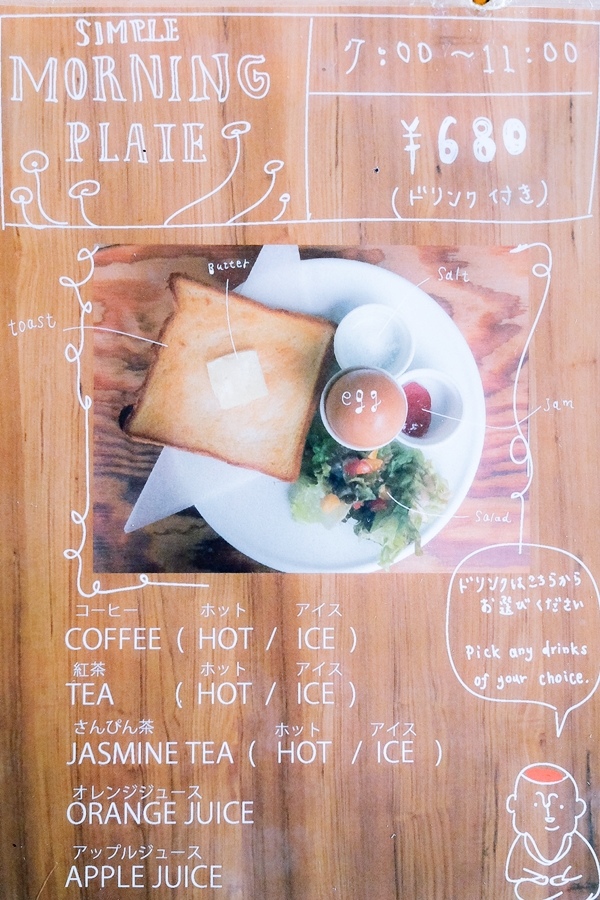 SIMPLE
MORNING
PLATE
7:00～11:00
¥680
(ドリンク付き)
Butter
Salt
toast
egg
Jam
Salad
ドリンクはこちらから
お選びください
Pick any drinks
of your choice.
コーヒー ホット アイス
COFFEE ( HOT / ICE )
紅茶 ホット アイス
TEA ( HOT / ICE )
さんぴん茶 ホット アイス
JASMINE TEA ( HOT / ICE )
オレンジジュース
ORANGE JUICE
アップルジュース
APPLE JUICE